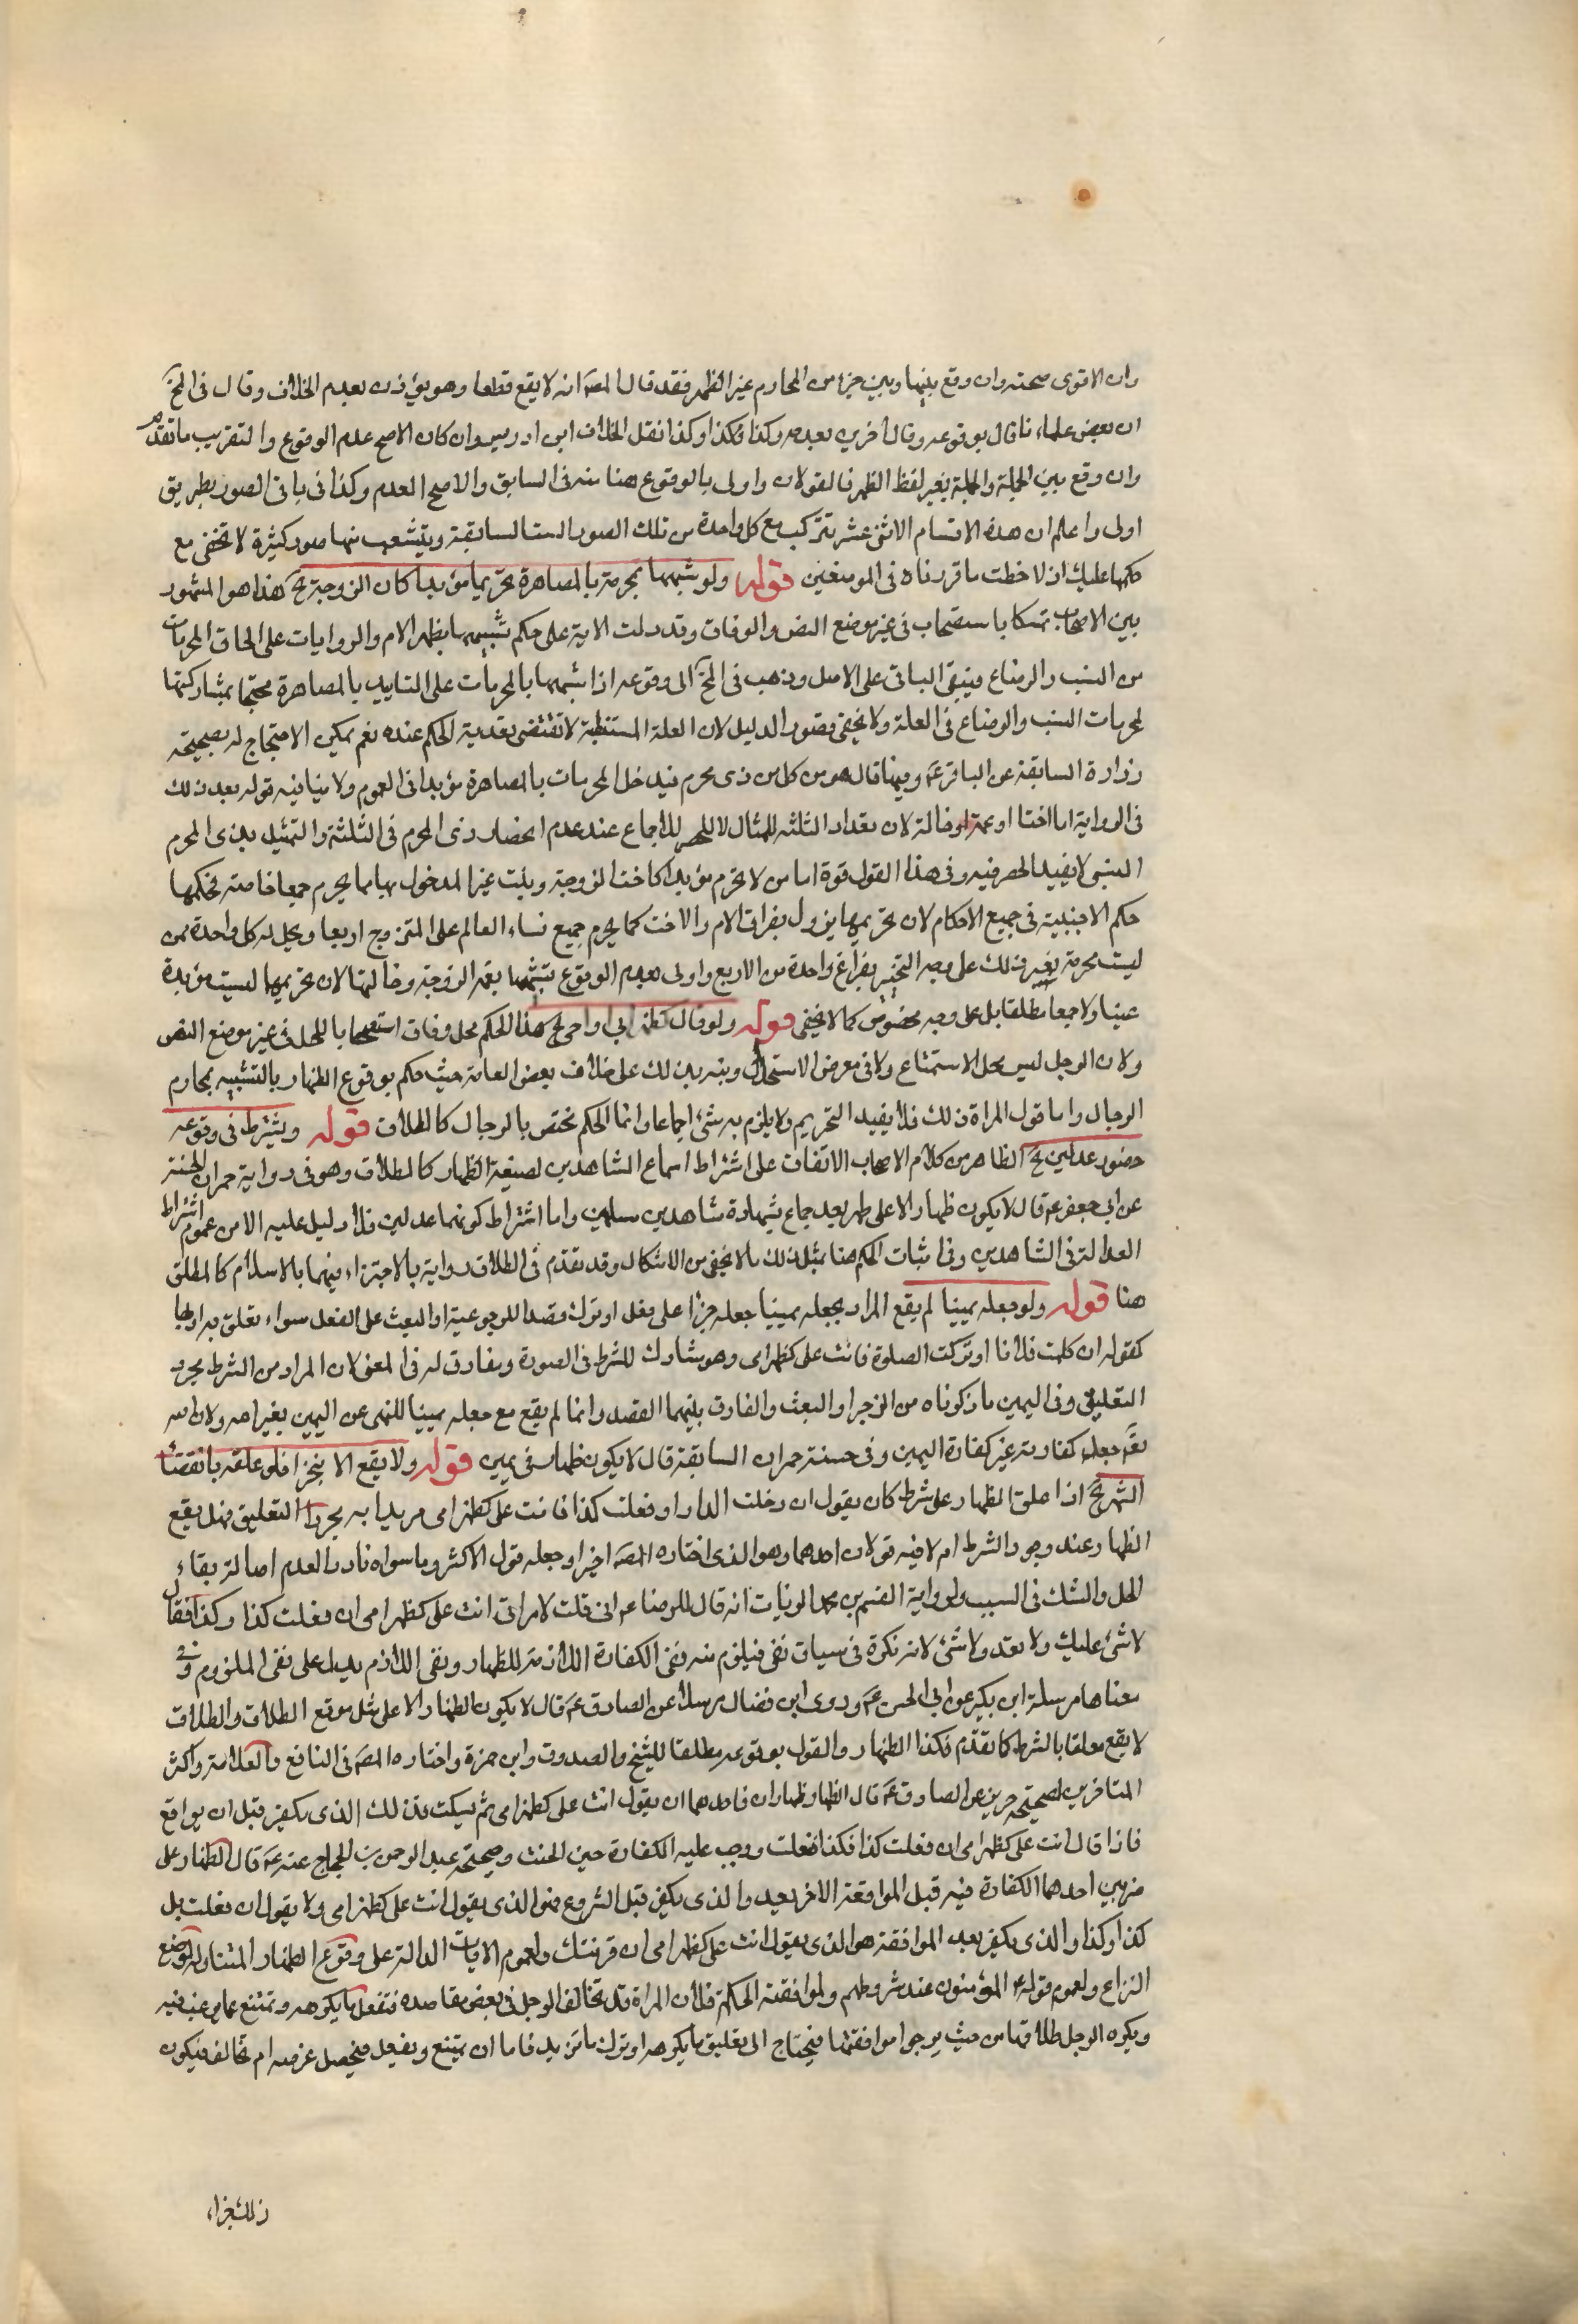 وان الاقوى صحته وان وقع بينها وبين جزء من المحارم غير الظهر فقد قال المصه انه لا يقع قطعا وهو يؤذن بعدم الخلاف وقال في المخ
ان بعض علمائنا قال بوقوعه وقال اخرون بعدمه وكذا وكذا نقل الخلاف ابن ادريس وان كان الاصح عدم الوقوع والتقريب ما تقدم
وان وقع بين الجملة والجملة بغير لفظ الظهر فالقولان واولى بالوقوع هنا منه في السابق والاصح العدم وكذا في باقي الصور بطريق
اولى واعلم ان هذه الاقسام الاثنى عشر تتركب مع كل واحدة من تلك الصور الست السابقة ويتشعب منها صور كثيرة لا تخفى مع
حكمها عليك ان لاحظت ما قررناه في الموضعين قوله ولو شبهها بمحرمة بالمصاهرة تحريما مؤبدا كان الزوجة الخ هذا هو المشهور
بين الاصحاب تمسكا باستصحاب في غير موضع النص والوفاق وقد دلت الاية على حكم تشبيهها بظهر الام والروايات على الحاق المحرمات
من النسب والرضاع فيبقى الباقي على الاصل وذهب في المخ الى وقوعه اذا شبهها بالمحرمات على التابيد بالمصاهرة محتجا بمشاركتها
لمحرمات النسب والرضاع في العلة ولا يخفى قصور الدليل لان العلة المستنبطة لا تقتضى تعدية الحكم عنده نعم يمكن الاحتجاج له بصحيحة
زرارة السابقة عن الباقر ع وفيها قال هو من كل من ذي محرم فيدخل المحرمات بالمصاهرة مؤبدا في العموم ولا ينافيه قوله بعد ذلك
في الرواية اما اختا او عمة او خالة لان تعداد الثلثه للمثال لا للحصر للاجماع عند عدم انحصار ذى المحرم في الثلثة والتمثيل بذى المحرم
النسبي لا يفيد الحصر فيه وفي هذا القول قوة اما من لا تحرم مؤبدا كاخت الزوجة وبنت غير المدخول بها مما يحرم جمعا خاصة فحكمها
حكم الاجنبية في جميع الاحكام لان تحريمها يزول بفراق الام والاخت كما يحرم جميع نساء العالم على المتزوج اربعا ويحل له كل واحدة ممن
ليست محرمة بغير ذلك على وجه التخيير بفراغ واحدة من الاربع واولى بعدم الوقوع تشبيهها بعمة الزوجة وخالتها لان تحريمها ليست مؤبدة
عينا ولا جمعا مطلقا بل على وجه مخصوص كما لا يخفى قوله ولو قال كظهر ابي او اخي الخ هذا الحكم محل وفاق استصحابا للحل في غير موضع النص
ولان الرجل ليس محل الاستمتاع ولا في معرض الاستحلال ونبه بذلك على خلاف بعض العامة حيث حكم بوقوع الظهار بالتشبيه بمحارم
الرجال واما قول المراة ذلك فلا يفيد التحريم ولا يلزم به شئ اجماعا وانما الحكم مختص بالرجال كالطلاق قوله ويشترط في وقوعه
حضور عدلين الخ الظاهر من كلام الاصحاب الاتفاق على اشتراط اسماع الشاهدين لصيغة الظهار كالطلاق وهو في رواية حمران الحسنة
عن ابي جعفر ع قال لا يكون ظهار الا على طهر بعد جماع بشهادة شاهدين مسلمين واما اشتراط كونهما عدلين فلا دليل عليه الا من عموم اشتراط
العدالة في الشاهدين وفي اثبات الحكم هنا بمثل ذلك ما لا يخفى من الاشكال وقد تقدم في الطلاق رواية بالاجتزاء فيهما بالاسلام كالمطلق
هنا قوله ولو جعله يمينا لم يقع المراد بجعله يمينا جعله جزاء على فعل او ترك قصدا للزجر عنه او البعث على الفعل سواء تعلق به او بها
كقوله ان كلمت فلانا او تركت الصلوة فانت على كظهر امى وهو مشارك للشرط في الصورة ومفارق له في المعنى لان المراد من الشرط مجرد
التعليق وفي اليمين ما ذكرناه من الزجر او البعث والفارق بينهما القصد وانما لم يقع مع جعله يمينا للنهى عن اليمين بغير الله ولان الله
تع جعل كفارته غير كفارة اليمين وفي حسنة حمران السابقة قال لا يكون ظهار في يمين قوله ولا يقع الا منجزا فلو علقه بانقضاء
الشهر الخ اذا علق الظهار على شرط كان يقول ان دخلت الدار او فعلت كذا فانت على كظهر امى مريدا به مجرد التعليق فهل يقع
الظهار عند وجود الشرط ام لا فيه قولان احدهما وهو الذى اختاره المصه اخيرا وجعله قول الاكثر وما سواه نادرا العدم اصالة بقاء
الحل والشك في السبب ولرواية القسم بن محمد الزيات انه قال للرضا ع انى قلت لامراتى انت على كظهر امى ان فعلت كذا وكذا فقال
لا شئ عليك ولا تعد ولا شئ لانه نكرة في سياق نفى فيلزم منه نفى الكفارة اللازمة للظهار ونفى اللازم يدل على نفى الملزوم وفي
معناها مرسلة ابن بكير عن ابي الحسن ع وروى ابن فضال مرسلا عن الصادق ع قال لا يكون الظهار الا على مثل موقع الطلاق والطلاق
لا يقع معلقا بالشرط كما تقدم فكذا الظهار والقول بوقوعه مطلقا للشيخ والصدوق وابن حمزة واختاره المصه في النافع والعلامة واكثر
المتاخرين لصحيحة حريز عن الصادق ع قال الظهار ظهاران فاحدهما ان يقول انت على كظهر امى ثم يسكت فذلك الذى يكفر قبل ان يواقع
فاذا قال انت على كظهر امى ان فعلت كذا فكذا ففعلت ووجب عليه الكفارة حين الحنث وصحيحة عبد الرحمن بن الحجاج عنه ع قال الظهار على
ضربين احدهما الكفارة فيه قبل المواقعة الاخر بعد والذى يكفر قبل الشروع فهو الذى يقول انت على كظهر امى ولا يقول ان فعلت بل
كذا وكذا والذى يكفر بعد المواقعة هو الذى يقول انت على كظهر امى ان قربتك ولعموم الايات الدالة على وقوع الظهار المتناوله لموضع
النزاع ولعموم قوله ع المؤمنون عند شروطهم ولموافقة الحكمة فلان المراة قد تخالف الرجل في بعض مقاصده فتفعل ما يكرهه وتمتنع عما يرغب فيه
ويكره الرجل طلاقها من حيث يرجوا موافقتها فيحتاج الى تعليق ما يكرهه او ترك ما تريد فاما ان تمتنع وتفعل فيحصل غرضه ام تخالف فيكون
ذلك جزاء